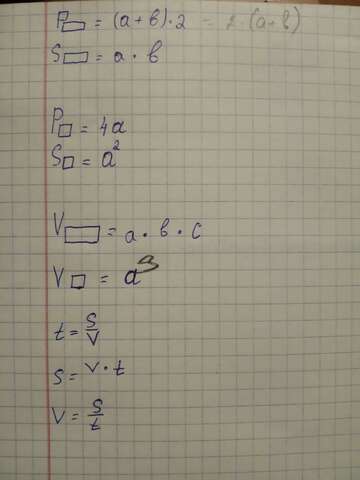 P▭ = (a + в)·2 = 2·(a+в)
S▭ = a · в
P□ = 4a
S□ = a²
V▭ = a · в · c
V□ = a³
t = s/v
s = v · t
v = s/t